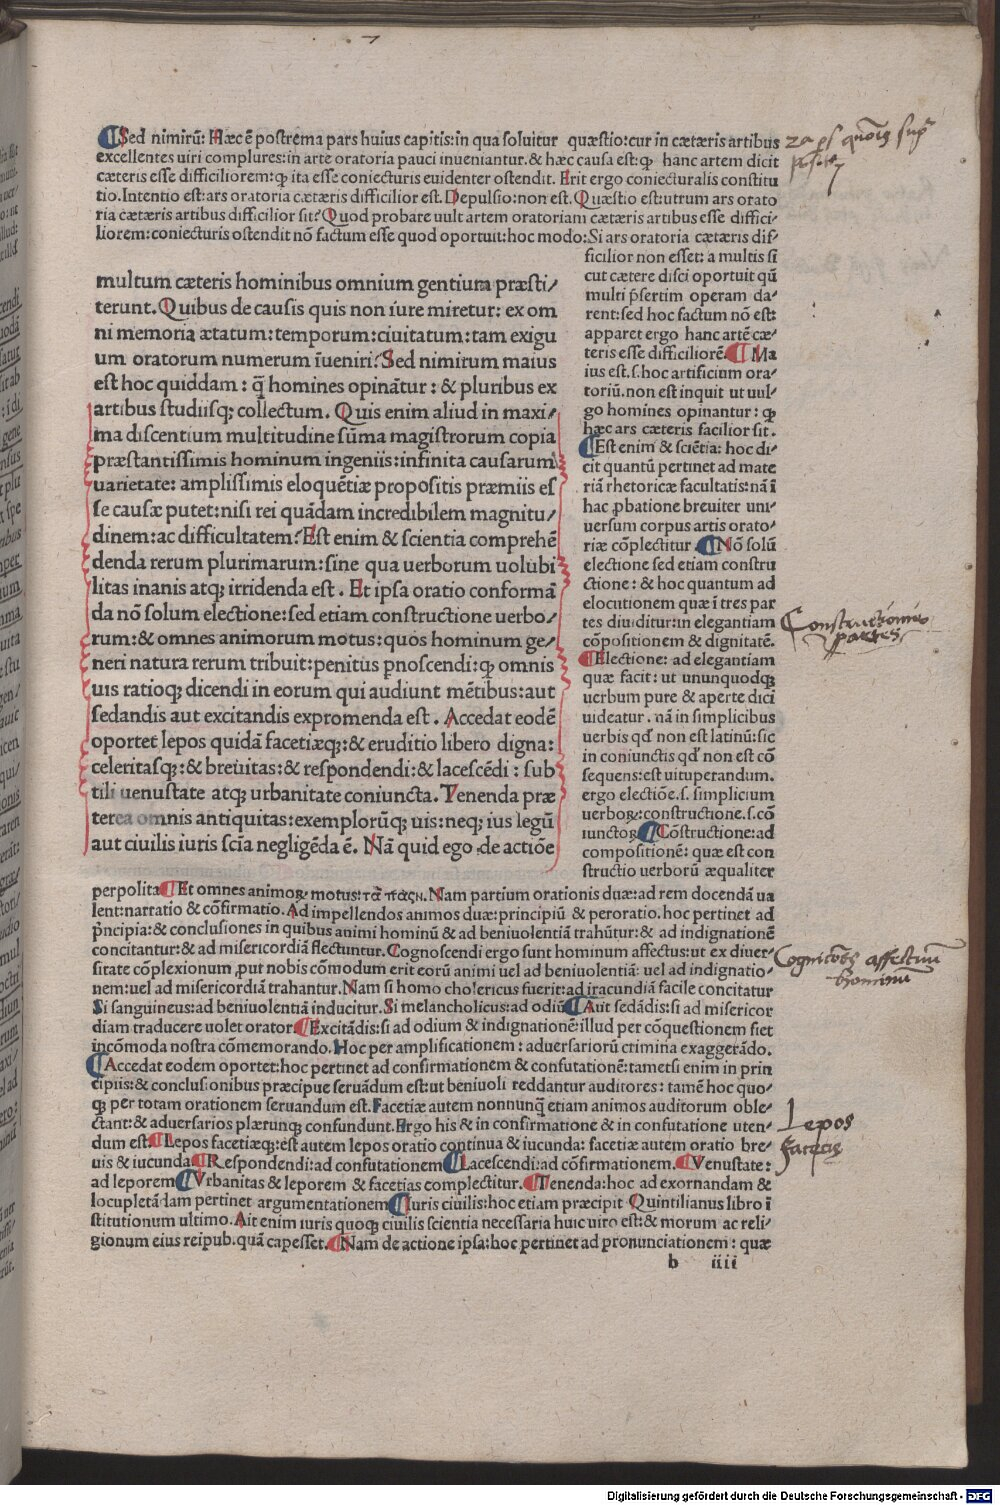 ¶Sed nimirū: Hæc ē postrema pars huius capitis: in qua soluitur quæstio: cur in cæteris artibus
excellentes uiri complures: in arte oratoria pauci inueniantur. & hæc causa est: ꝙ hanc artem dicit
cæteris esse difficiliorem: ꝙ ita esse coniecturis euidenter ostendit. Erit ergo coniecturalis constitu
tio. Intentio est: ars oratoria cæteris difficilior est. Depulsio: non est. Quæstio est: utrum ars orato
ria cæteris artibus difficilior sit? Quod probare uult artem oratoriam cæteris artibus esse diffici⸗
liorem: coniecturis ostendit nō factum esse quod oportuit: hoc modo: Si ars oratoria cæteris dif⸗
ficilior non esset: a multis si
cut cætere disci oportuit qū
multi p̄sertim operam da⸗
rent: sed hoc factum nō est:
apparet ergo hanc artē cæ⸗
teris esse difficiliorē. ¶Ma
ius est. s. hoc artificium ora⸗
toriū. non est inquit ut uul⸗
go homines opinantur: ꝙ
hæc ars cæteris facilior sit.
¶Est enim & sciētia: hoc di⸗
cit quantū pertinet ad mate
riā rhetoricæ facultatis: nā ī
hac ꝓbatione breuiter uni⸗
uersum corpus artis orato⸗
riæ cōplectitur. ¶Nō solū
electione sed etiam constru
ctione: & hoc quantum ad
elocutionem quæ ī tres par
tes diuiditur: in elegantiam
cōpositionem & dignitatē.
¶Electione: ad elegantiam
quæ facit: ut ununquodqꝫ
uerbum pure & aperte dici
uideatur. nā in simplicibus
uerbis qđ non est latinū: sic
in coniunctis qđ non est cō
sequens: est uituperandum.
ergo electiōe. s. simplicium
uerboꝝ: constructione. s. cō
iunctoꝝ ¶Cōstructione: ad
compositionē: quæ est con
structio uerborū æqualiter
multum cæteris hominibus omnium gentium præsti⸗
terunt. Quibus de causis quis non iure miretur: ex om
ni memoria ætatum: temporum: ciuitatum: tam exigu
um oratorum numerum īueniri? Sed nimirum maius
est hoc quiddam: q̄ homines opinātur: & pluribus ex
artibus studiisqꝫ collectum. Quis enim aliud in maxi⸗
ma discentium multitudine sūma magistrorum copia
præstantissimis hominum ingeniis: infinita causarum
uarietate: amplissimis eloquētiæ propositis præmiis es
se causæ putet: nisi rei quādam incredibilem magnitu⸗
dinem: ac difficultatem? Est enim & scientia comprehē
denda rerum plurimarum: sine qua uerborum uolubi
litas inanis atqꝫ irridenda est. Et ipsa oratio conformā
da nō solum electione: sed etiam constructione uerbo⸗
rum: & omnes animorum motus: quos hominum ge⸗
neri natura rerum tribuit: penitus ꝑnoscendi: ꝙ omnis
uis ratioqꝫ dicendi in eorum qui audiunt mētibus: aut
sedandis aut excitandis expromenda est. Accedat eodē
oportet lepos quidā facetiæqꝫ: & eruditio libero digna:
celeritasqꝫ: & breuitas: & respondendi: & lacescēdi: sub
tili uenustate atqꝫ urbanitate coniuncta. Tenenda præ
terea omnis antiquitas: exemplorūqꝫ uis: neqꝫ ius legū
aut ciuilis iuris scīa negligēda ē. Nā quid ego de actiōe
perpolita ¶Et omnes animoꝝ motus: τὰ πάθη. Nam partium orationis duæ: ad rem docendā ua
lent: narratio & cōfirmatio. Ad impellendos animos duæ: principiū & peroratio. hoc pertinet ad
p̄ncipia: & conclusiones in quibus animi hominū & ad beniuolentiā trahūtur: & ad indignationē
concitantur: & ad misericordiā flectuntur. Cognoscendi ergo sunt hominum affectus: ut ex diuer⸗
sitate cōplexionum ꝓut nobis cōmodum erit eorū animi uel ad beniuolentiā: uel ad indignatio⸗
nem: uel ad misericordiā trahantur. Nam si homo cholericus fuerit: ad iracundiā facile concitatur
Si sanguineus: ad beniuolentiā inducitur. Si melancholicus: ad odiū ¶Aut sedādis: si ad misericor
diam traducere uolet orator ¶Excitādis: si ad odium & indignationē: illud per cōquestionem fiet
incōmoda nostra cōmemorando. Hoc per amplificationem: aduersariorū crimina exaggerādo.
¶Accedat eodem oportet: hoc pertinet ad confirmationem & confutationē: tametsi enim in prin
cipiis: & conclusionibus præcipue seruādum est: ut beniuoli reddantur auditores: tamē hoc quo⸗
qꝫ per totam orationem seruandum est. Facetiæ autem nonnunq̄ etiam animos auditorum oble⸗
ctant: & aduersarios plærunqꝫ confundunt. Ergo his & in confirmatione & in confutatione uten⸗
dum est ¶Lepos facetiæqꝫ: est autem lepos oratio continua & iucunda: facetiæ autem oratio bre⸗
uis & iucunda ¶Respondendi: ad confutationem ¶Lacescendi: ad cōfirmationem. ¶Venustate:
ad leporem ¶Vrbanitas & leporem & facetias complectitur. ¶Tenenda: hoc ad exornandam &
locupletādam pertinet argumentationem ¶Iuris ciuilis: hoc etiam præcipit Quintilianus libro ī
stitutionum ultimo. Ait enim iuris quoqꝫ ciuilis scientia necessaria huic uiro est: & morum ac reli⸗
gionum eius reipub. quā capesset. ¶Nam de actione ipsa: hoc pertinet ad pronunciationem: quæ
b iiii
Constructionis
partes
Cognitōis affectuū
hominū
Lepos
Facetię
Digitalisierung gefördert durch die Deutsche Forschungsgemeinschaft - DFG